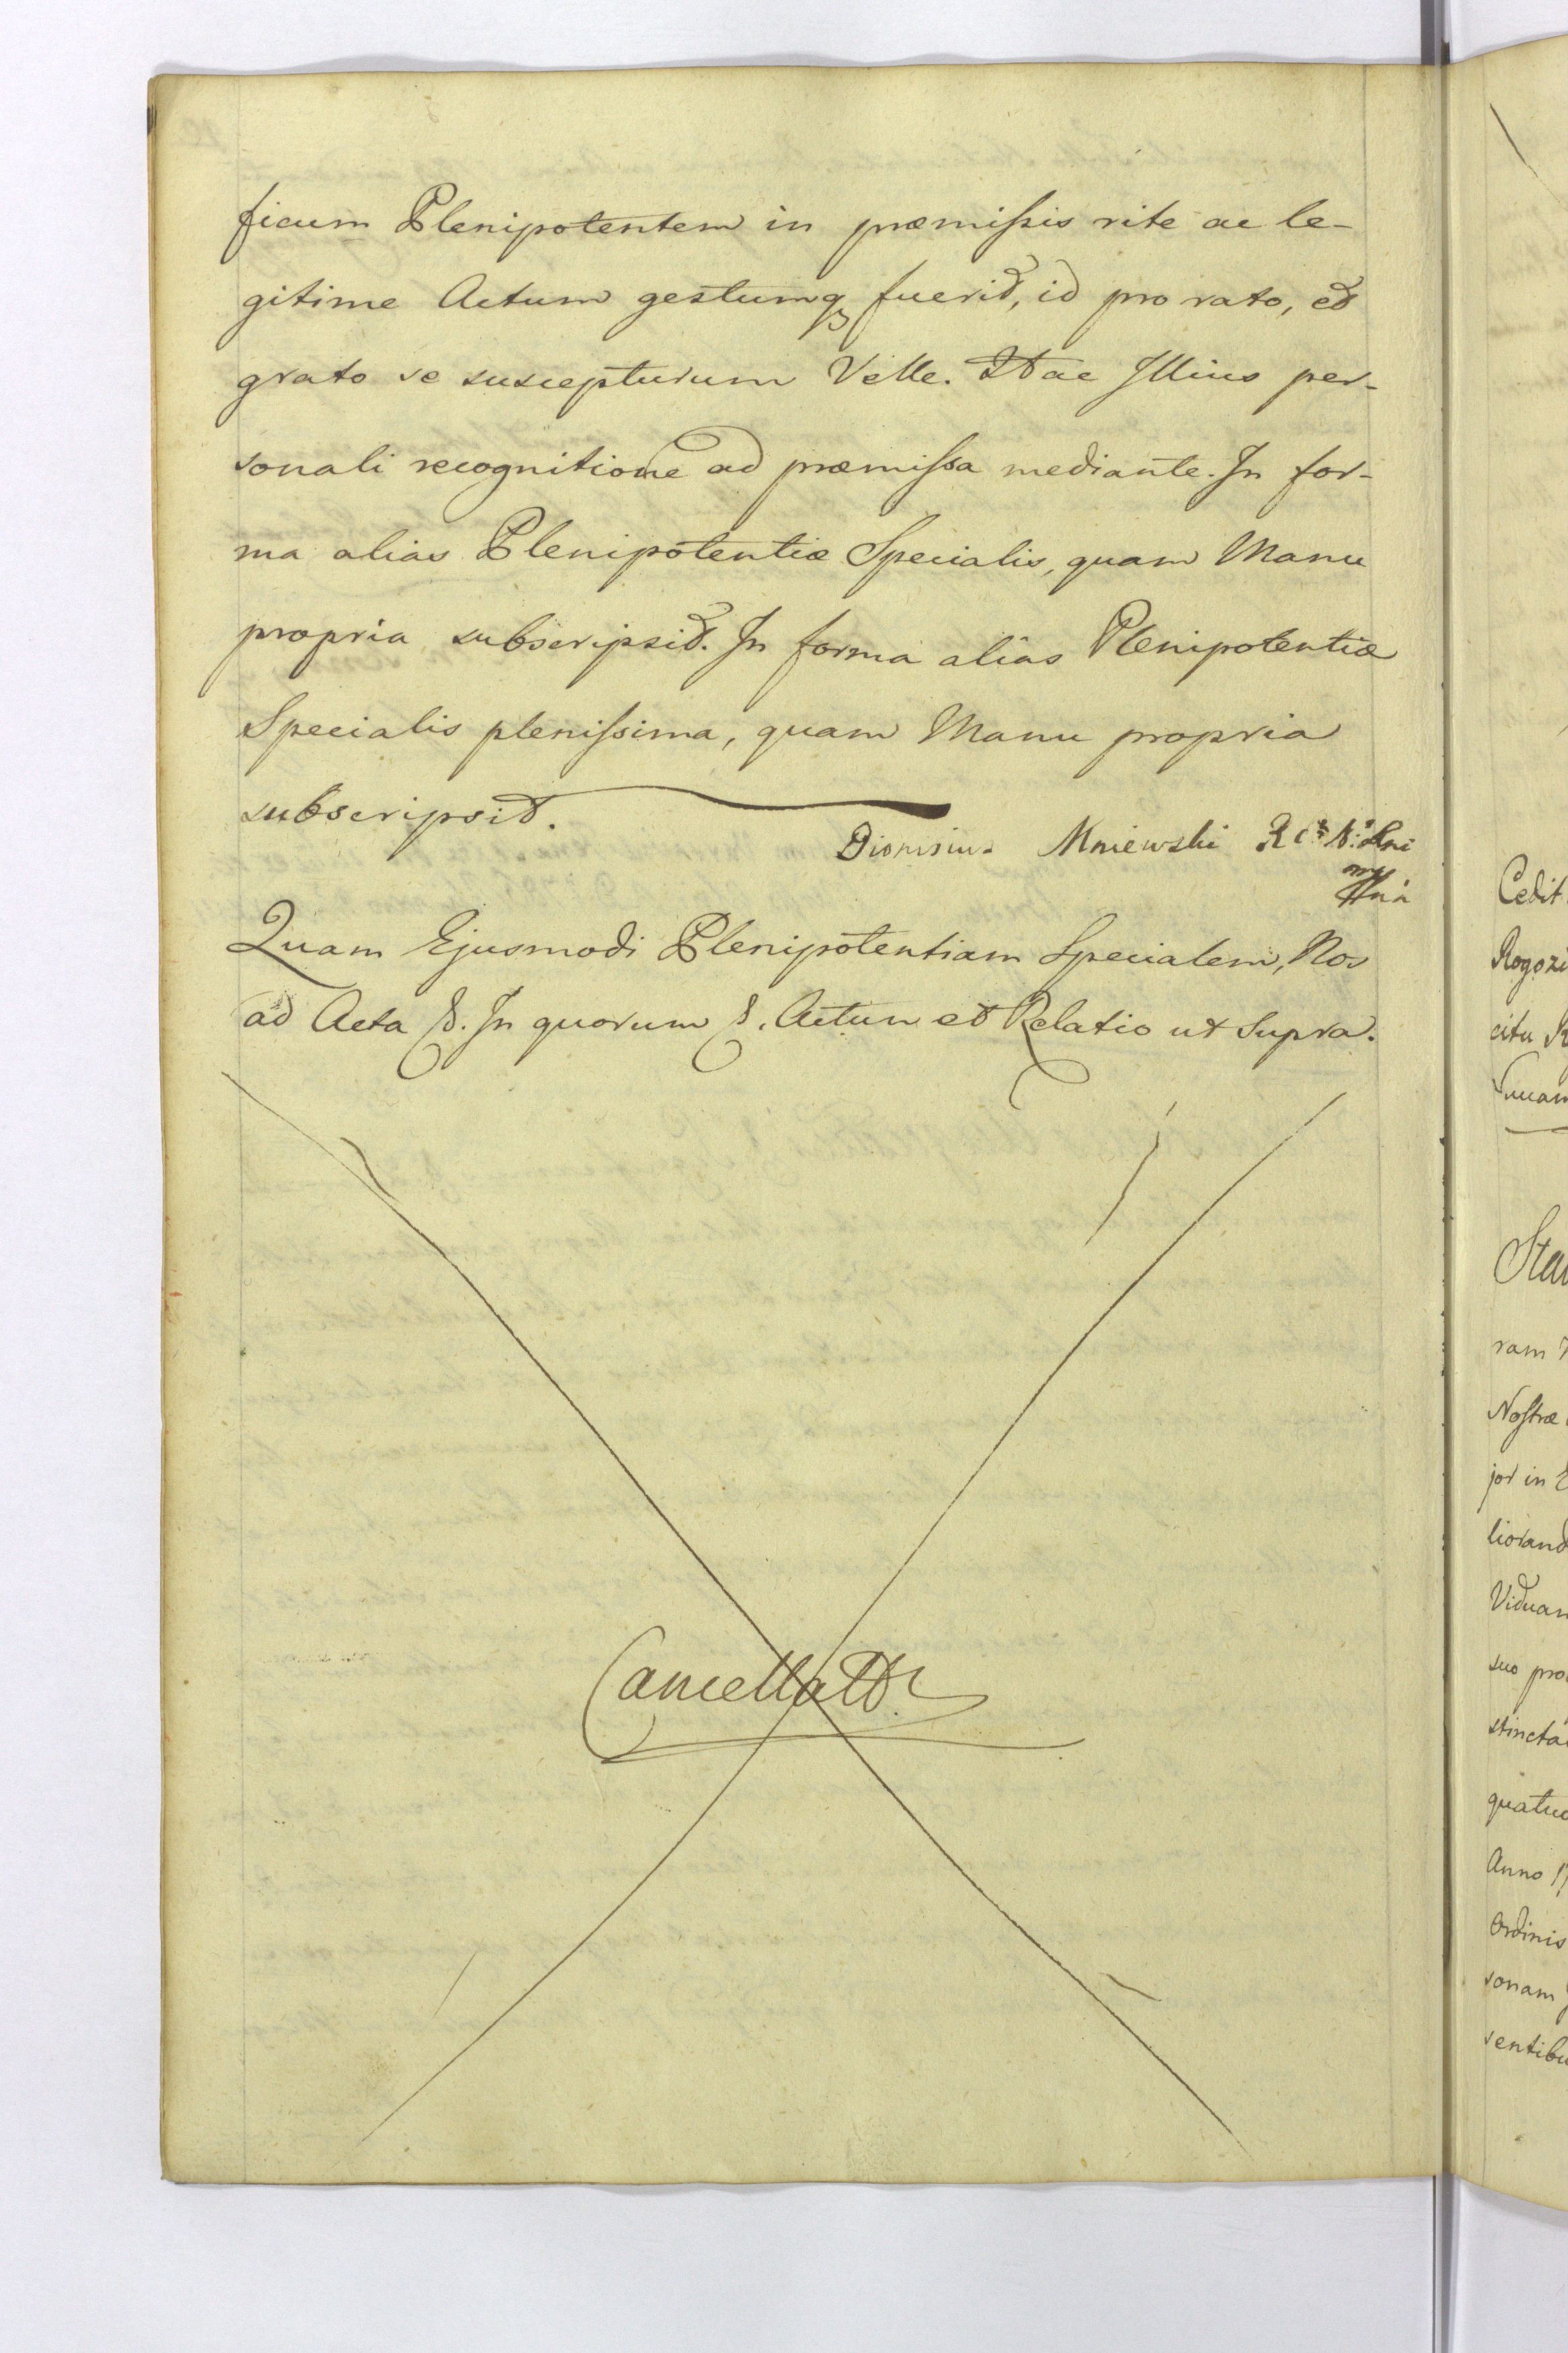 ficum Plenipotentem in præmissis rite ac le-
gitime Actum gestumq fuerit, id pro rato, et
grato se suscepturum Velle. Hac Illius per-
sonali recognitione ad præmissa mediante. In for-
ma alias Plenipotentiæ Specialis, quam Manu
propria subscripsit. In forma alias Plenipotentiæ
Specialis plenissima, quam Manu propria
subscripsit.
Dionisius Mniewski
Quam Ejusmodi Plenipotentiam Specialem, Nos
ad Acta &. In quorum &. Actum et Relatio ut Supra.
Cedit
Rogozi
citu
Nostræ
ram
jor in
liorand
Viduam
suo pro
stincta
quatuo
Anno 17
Ordinis
sonam
sentibu